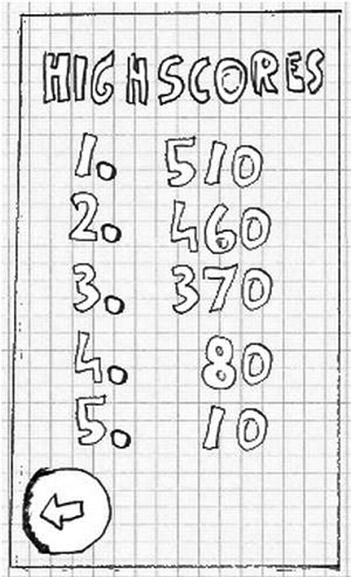 HIGHSCORES
1. 510
2. 460
3. 370
4. 80
5. 10